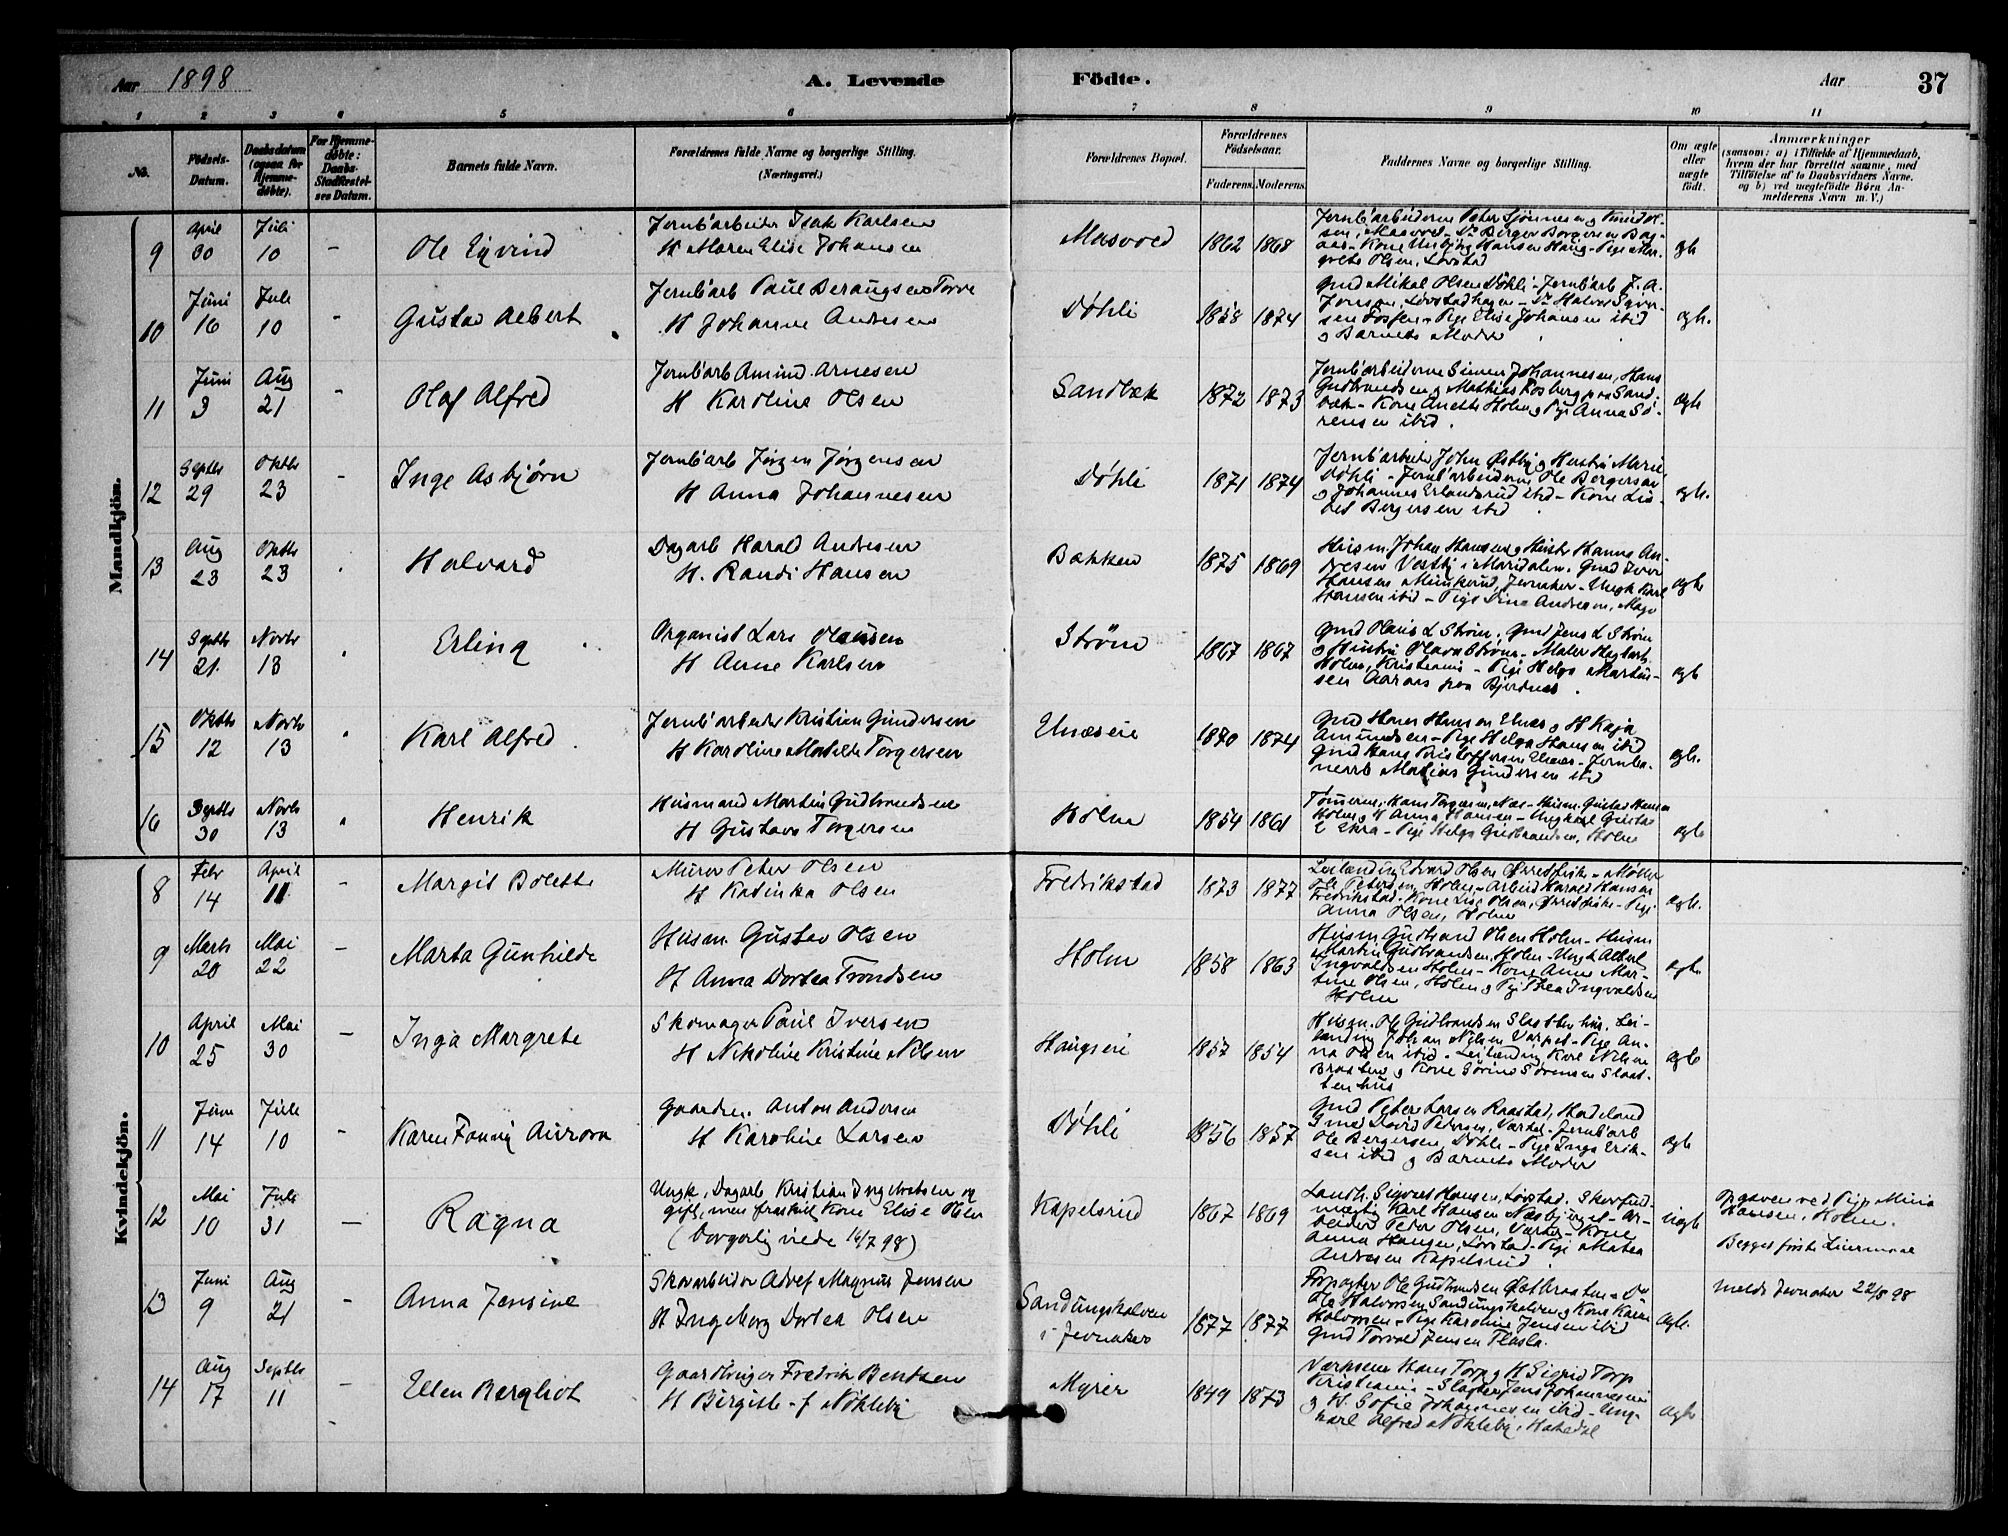 Aar 1898
A. Levende
Födte.
Aar
37
1 2 3 4 5 6 7 8 9 10 11
No.
Födsels-Datum.
Daabsdatum (ogsaa for Hjemmedöbte).
For Hjemmedöbte: Daabs-Stadfæstelses Datum.
Barnets fulde Navn.
Forældrenes fulde Navne og borgerlige Stilling. (Næringsvei.)
Forældrenes Bopæl.
Forældrenes Födselsaar.
Faderens. Moderens.
Faddernes Navne og borgerlige Stilling.
Om ægte eller uægte födt.
Anmærkninger
(saasom: a) i Tilfælde af Hjemmedaab, hvem der har forrettet samme, med Tilföielse af to Daabsvidners Navne, og b) ved uægtefödte Börn Anmelderens Navn m. V.)
Mandkjön.
9 April 30 Juli 10 – Ole Eivind
Jernb'arbeider Isak Karlsen
H Maren Elise Johansen
Masoved 1862 1868
grete Olsen, Lövstad
ægte
10 Juni 16 Juli 10 – Gustav Albert
Jernb'arb Paul
H Johanne Andresen
Döhli 1858 1874
Gmd Mikal Olsen Döhli – Jernb'arb J. A.
Pige Elise Johansen ibid
og Barnets Moder
ægte.
11 Juni 3 Aug 21 – Olaf Alfred
Jernb'arb Amund Arnesen
H Karoline Olsen
Sandbæk 1872 1873
Jernb'arbeiderne Simen Johannesen, Hans
Gudbrandsen og Mathias Fosberg paa Sand-
bæk – Kone Anette Holm og Pige Anna Sö-
rensen ibid.
ægte
12 Septbr 29 Oktbr 23 – Inge Asbjørn
Jernb'arb Jørgen Jørgensen
H Anna Johannesen
Döhli 1871 1874
Jernb'arbeider John Østby og Hustru Marie
Döhli – Jernb'arbeiderne Ole Bergersen
og Johannes Erlandsrud ibid – Kone Lis-
bet Bergersen ibid
ægte.
13 Aug 23 Oktbr 23 Halvard
Dagarb Harald Andresen
H. Randi Hansen
Bakken 1875 1869
Husm. Johan Hansen og Hustr Hanna An-
dresen Vestby i Maridalen. Gmd Iver
Hansen Munkerud, Jevnaker – Ungk Karl
Hansen ibid – Pige Dina Andresen, Mago
ægte
14 Septbr 21. Novbr 13 Erling
Organist Lars Olausen
H Anne Karlsen
Ström 1867 1867
Gmd Olaus L Ström, Gmd Jens L Ström
og Hustru Olava Ström – Maler Hagbart
Holm, Kristiania – Pige Helga Martin-
sen Aaraas paa Bjerdnes.
ægte
15 Oktbr 12 Novbr 13 Karl Alfred.
Jernb'arbeider Kristian Gundersen
H Karoline Matilde Torgersen
Elnæseie 1870 1874
Gmd Hans Hansen Elnæs og H Kaja
Amundsen – Pige Helga Hansen ibid
Gmd Hans Kristoffersen Elnæs – Jernba-
nearb Matias Gundersen ibid
ægte.
16 Septbr 30 Novbr 13 Henrik
Husmand Martin Gudbrandsen
H Gustava Torgersen
Holm 1854 1861
Tømmerm. Hans Torgersen, Næs – Husm. Gustav Hansen
Holm og H Anna Hansen – Ungkarl Gustav
E Ekra – Pige Helga Gudbrandsen, Holm
ægte
Kvindekjön.
8 Febr 14 April 11 – Margit Bolette
Murer Peter Olsen
H Katinka Olsen
Fredrikstad 1873 1877
Leilænding Edvard Olsen Ørretfiske – Møller
Ole Petersen, Holm – Arbeid Harald Hansen
Fredrikstad – Kone Lise Olsen, Ørretfiske – Pige
Anna Olsen, Holm
ægte.
9 Marts 20 Mai 22 – Marta Gunhilde
Husm Gustav Olsen
H Anna Dortea Trondsen
Holm 1858 1863
Husm Gudbrand Olsen Holm – Husm
Martin Gudbrandsen, Holm – Ungk Albert
Ingvaldsen Holm – Kone Anne Mar-
tine Olsen, Holm og Pige Thea Ingvaldsen
Holm
ægte
10 April 25 Mai 30 – Inga Margrete
Skomager Paul Iversen
H Nikoline Kristine Nilsen
Haugseie 1857 1854
Husm. Ole Gudbrandsen Slaattenhus. Lei-
lænding Johan Nilsen Varpet – Pige An-
na Olsen ibid. – Leilænding Karl Nilsen
Braaten og Kone Sörine Sörensen Slaat-
tenhus
ægte
11 Juni 14 Juli 10 – Karen Fanny Aurora
Gaardm. Anton Andersen
H Karoline Larsen
Döhli 1856 1857
Gmd Peter Larsen Raastad, Hadeland
Smed David Pedersen, Værket. Jernb'arb
Ole Bergersen, Döhli – Pige Inga Erik-
sen ibid og Barnets Moder
ægte
12 Mai 10 Juli 31 – Ragna
Ungk, Dagarb Kristian Ingebretsen og
gift, men fraskilt Kone Elise Olsen
(borgerlig viede 16/7 98)
Kapelsrud 1867 1869
Landh. Sigvart Hansen, Lövstad. Skovfuld-
mægtig Karl Hansen Næsbjerget – Ar-
beider Peter Olsen, Værket – Kone
Anna Hansen, Lövstad – Pige Matea
Andresen Kapelsrud
uægte
Opgaven ved Pige Mina
Hansen, Holm.
Begges förste Leiermaal
13 Juni 9 Aug 21 – Anna Jensine
Skovarbeider Adolf Magnus Jensen
H Ingeborg Dortea Olsen
Sandungskalven
i Jevnaker
1877 1877
Forpagter Ole Gudbrandsen Østbraaten – Do
Ole Halvorsen Sandungskalven og Kone Karen
Halvorsen – Pige Karoline Jensen ibid
Gmd Torvald Jensen Flasla.
ægte.
meldt Jevnaker 22/8 98
14 Aug 17 Septbr 11 – Ellen Bergliot
Gaardbruger Fredrik Bentsen
H Birgitte f. Nökleby
Myrer 1849 1873
Værkseier Hans Torp og H Sigrid Torp
Kristiania – Slagter Jens Johannesen
og H. Sofie Johannesen ibid – Ung-
karl Alfred Nökleby, Hakedal
ægte